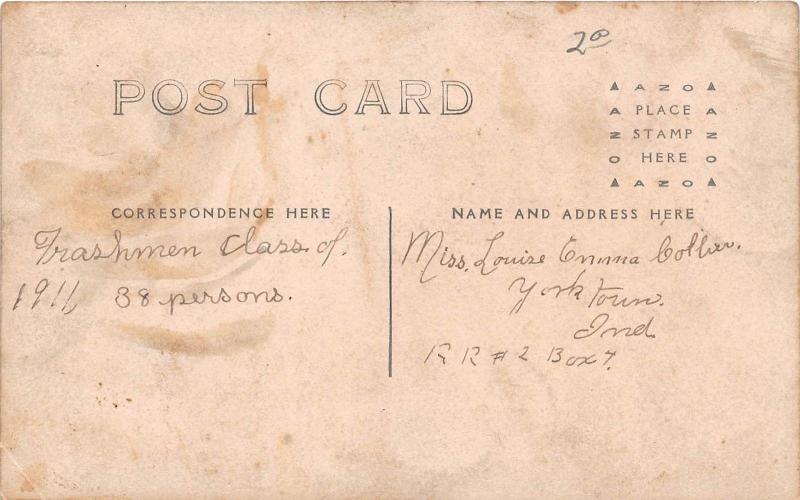 20
POST CARD
▲ A Z O ▲
A PLACE A
Z STAMP Z
O HERE O
▲ A Z O ▲
CORRESPONDENCE HERE
Frashmen Class of.
1911, 38 persons.
NAME AND ADDRESS HERE
Miss. Louise Emma
York Town.
Ind.
R R # 2 Box 7.